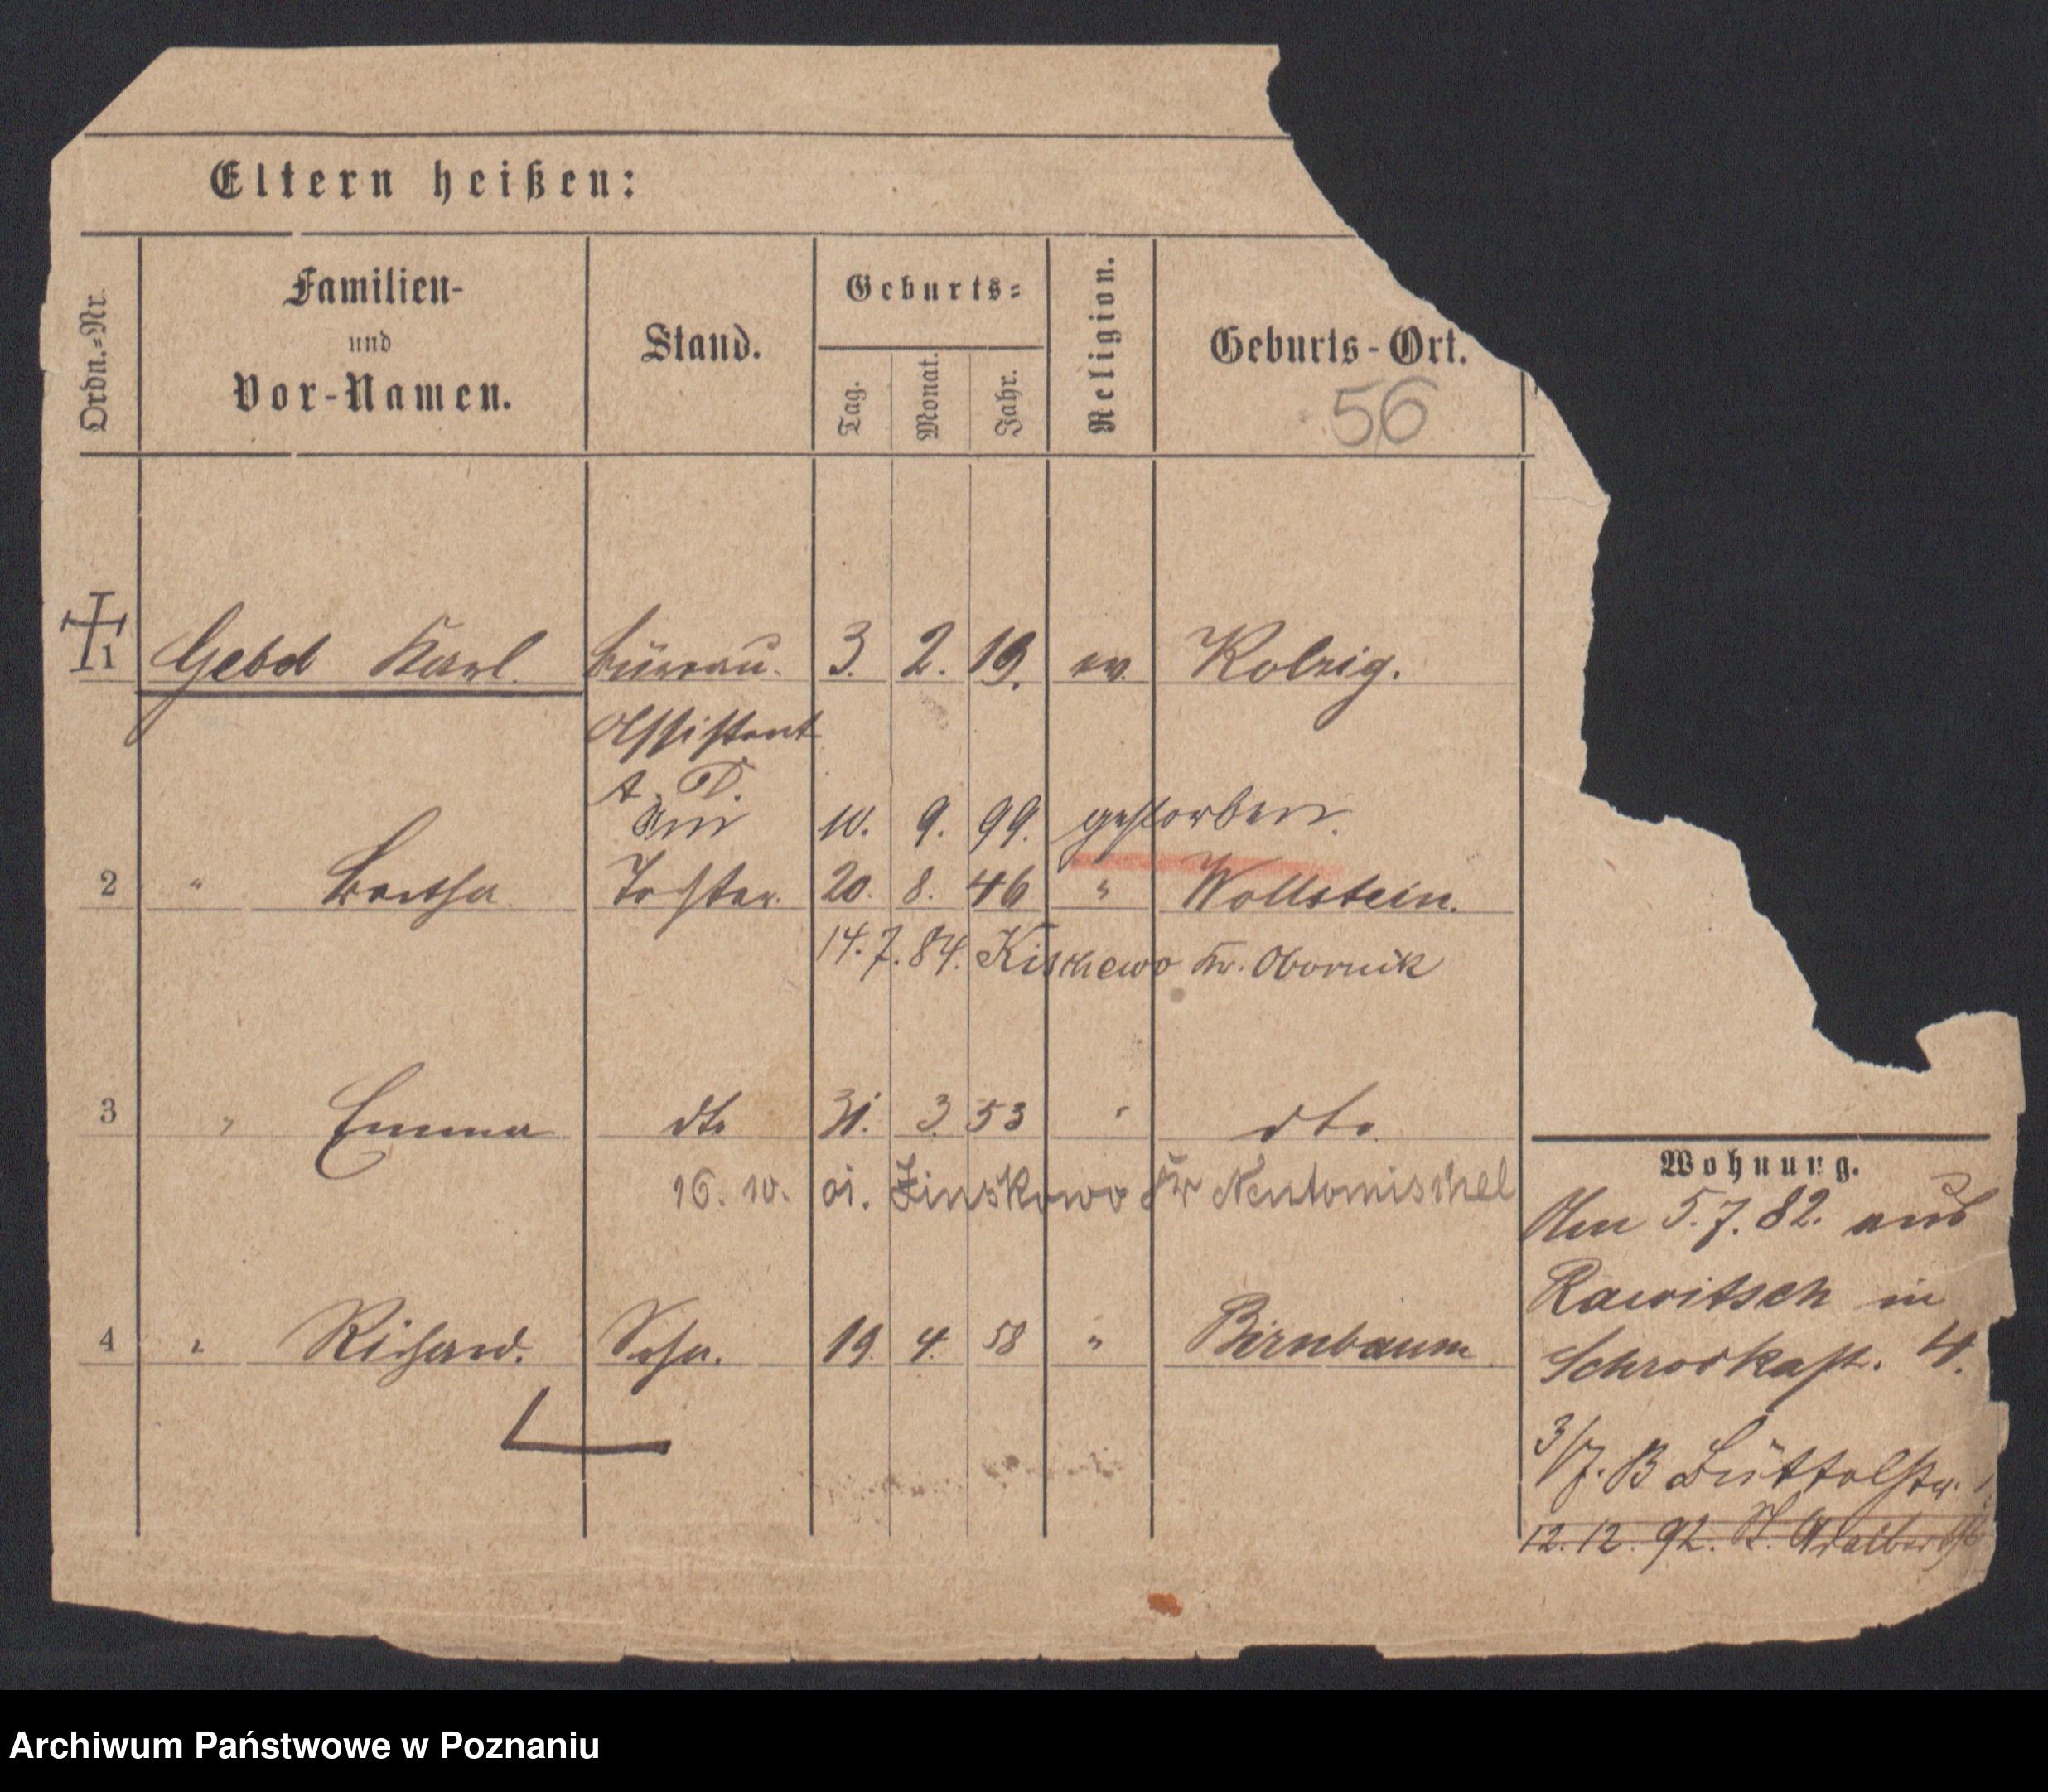 Eltern heißen:
Ordn.=Nr.
Familien-
und
Vor-Namen.
Stand.
Geburts=
Tag.
Monat.
Jahr.
Religion.
Geburts-Ort.
56
1 Gebd Karl. Büreau- 3. 2. 19. ev. Kolzig.
Assistent
a. D.
10. 9. 99. gestorben.
2 " Bertha Tochter. 20. 8. 46 " Wollstein.
14. 7. 84. Kischewo Kr. Obornik
3 " Emma dto 31. 3. 53 " dto.
16. 10. 01. Zinskowo Kr Neutomischel
4 " Richard. Sohn. 19. 4. 58 " Birnbaum
Wohnung.
Am 5. 7. 82. aus
Rawitsch in
Schrodkast. 4.
3/7. B Büttelstr. 1
12. 12. 92. St. Adalbert
Archiwum Państwowe w Poznaniu